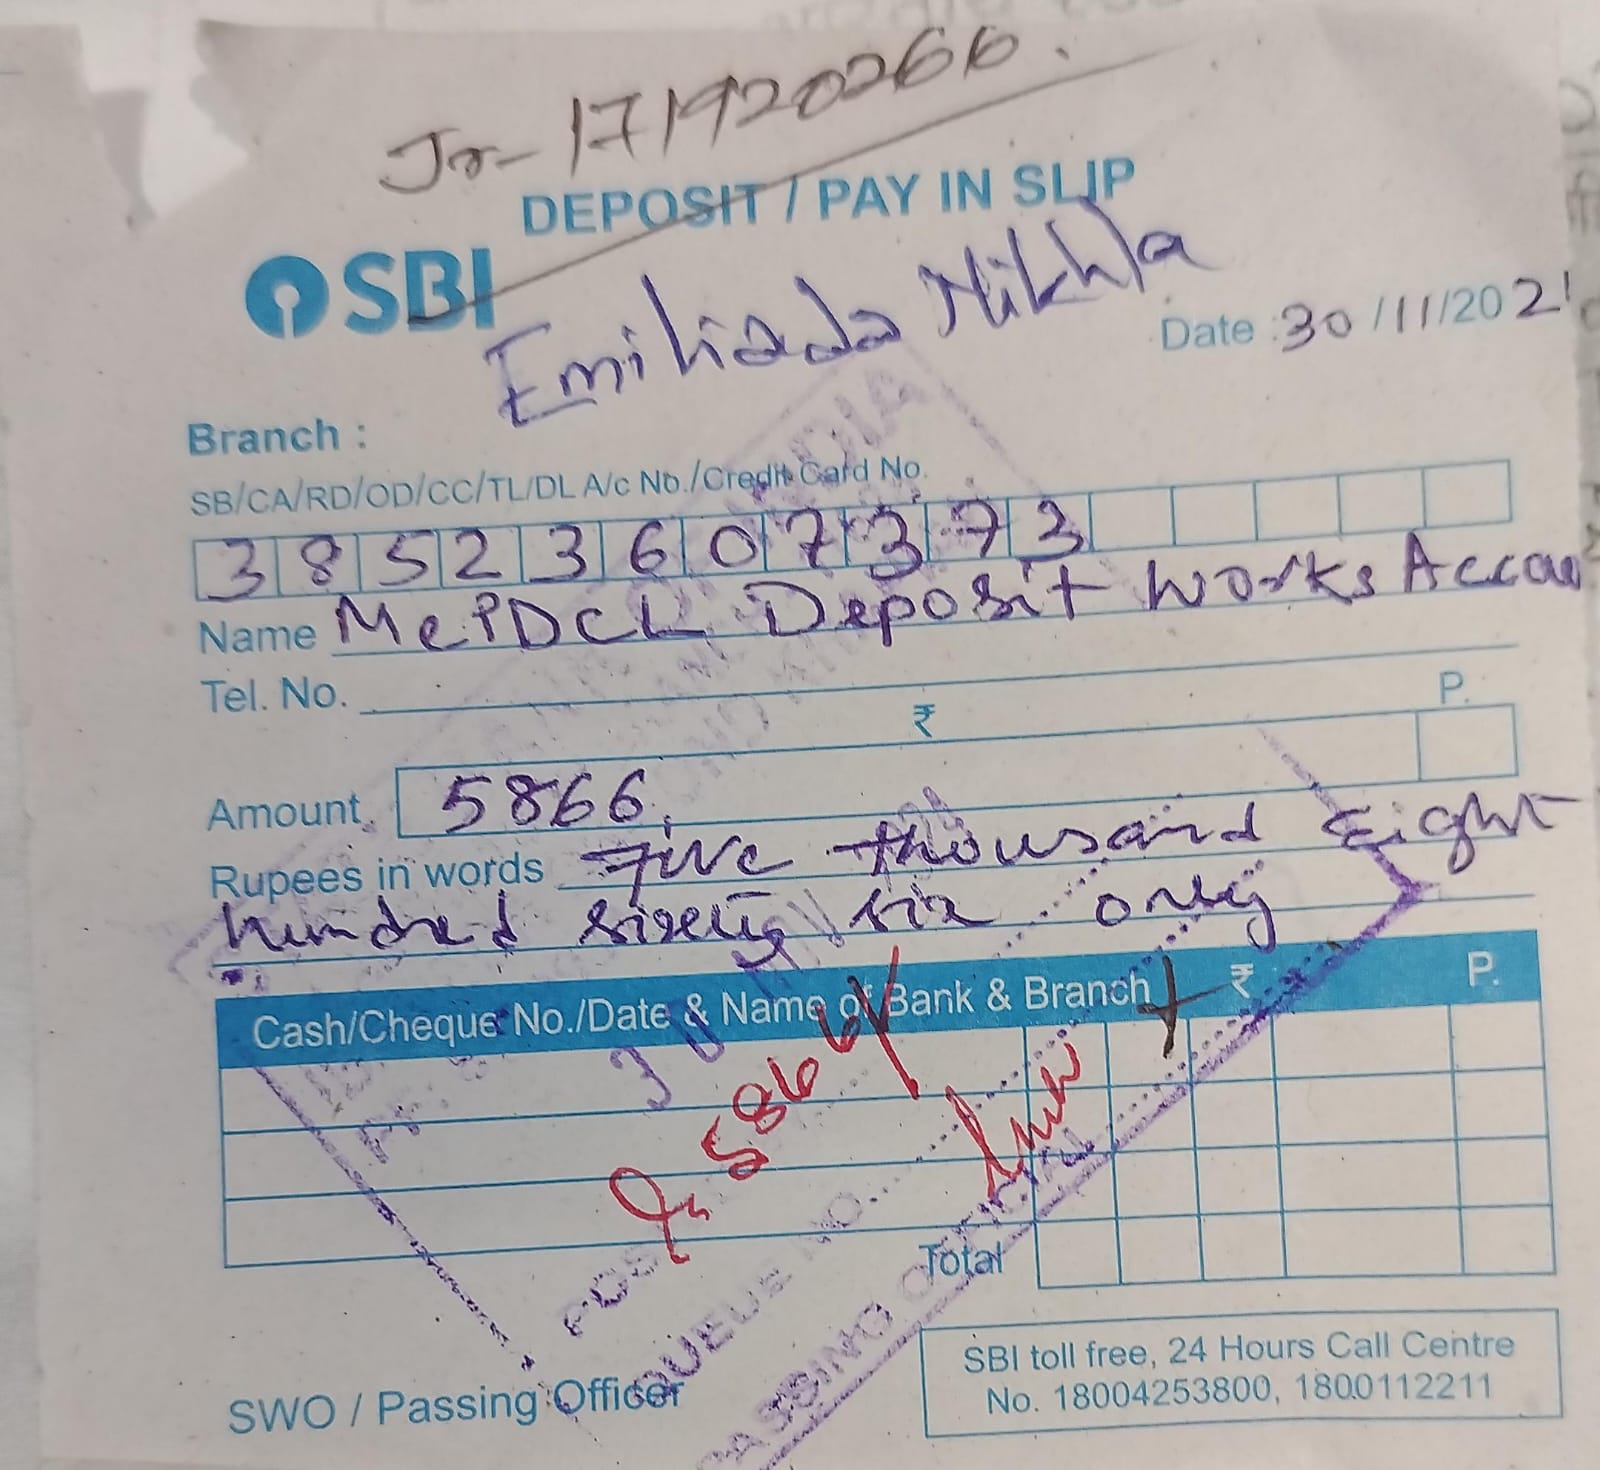 Jr- 171920266.
DEPOSIT / PAY IN SLIP
SBI
Emiliada Nikhla
Date : 30/11/2021
Branch :
SB/CA/RD/OD/CC/TL/DL A/c No./Credit Card No.
38523607373
Name MePDCL Deposit Works Accou
Tel. No.
₹ P.
Amount 5866.
Rupees in words Five thousand Eight
hundred sixety six only
Cash/Cheque No./Date & Name of Bank & Branch ₹ P.
5866/
QUEUE NO.
PASSING OFFICIAL
Total
SWO / Passing Officer
SBI toll free, 24 Hours Call Centre
No. 18004253800, 1800112211